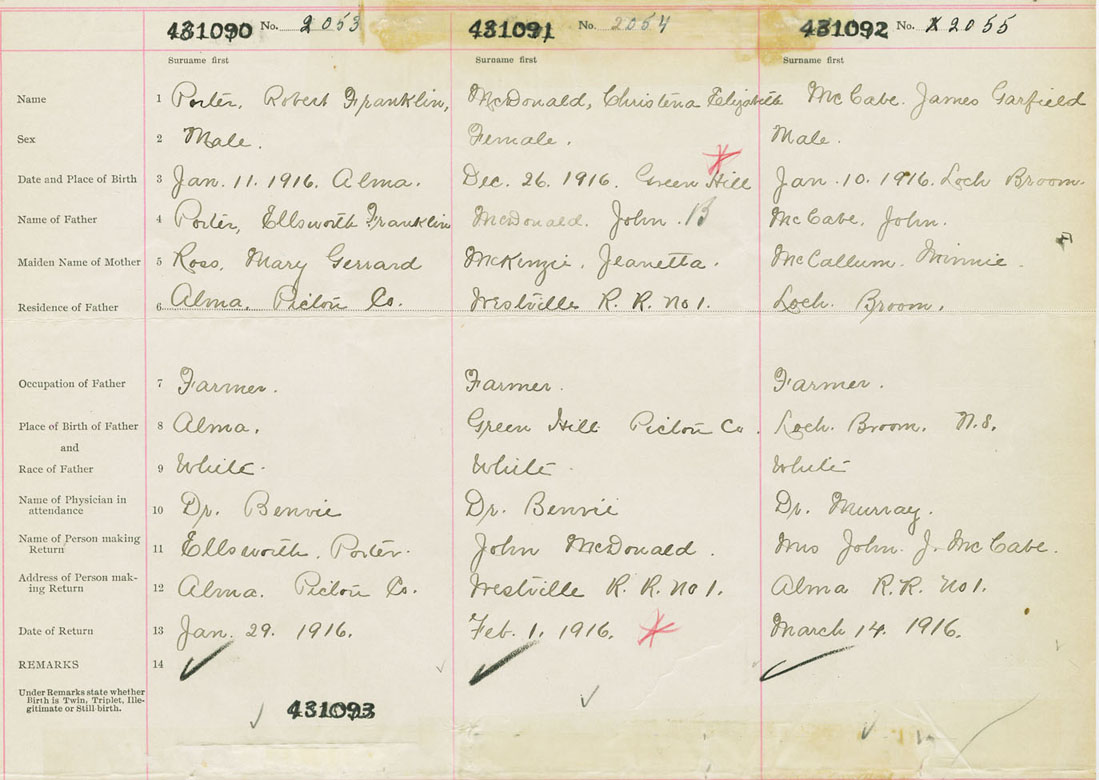 431090 No. 2053 431091 No. 2054 431092 No. X 2055
Surname first Surname first Surname first
Name 1 Porter, Robert Franklin, McDonald, Christena Elizabeth McCabe. James Garfield
Sex 2 Male. Female. Male.
Date and Place of Birth 3 Jan. 11. 1916. Alma. Dec. 26. 1916. Green Hill Jan. 10. 1916. Loch Broom.
Name of Father 4 Porter, Ellsworth Franklin McDonald. John. B McCabe, John.
Maiden Name of Mother 5 Ross, Mary Gerrard McKenzie, Jeanetta. McCallum. Minnie.
Residence of Father 6 Alma. Pictou Co. Westville R. R. No 1. Loch Broom.
Occupation of Father 7 Farmer. Farmer. Farmer.
Place of Birth of Father 8 Alma. Green Hill Pictou Co. Loch. Broom. N.S.
and
Race of Father 9 White. White. White
Name of Physician in
attendance 10 Dr. Benvie Dr. Benvie Dr. Murray.
Name of Person making
Return 11 Ellsworth. Porter. John McDonald. Mrs John. J. McCabe.
Address of Person mak-
ing Return 12 Alma. Pictou Co. Westville R. R. No 1. Alma R.R. No1.
Date of Return 13 Jan. 29. 1916. Feb. 1. 1916. March 14. 1916.
REMARKS 14
Under Remarks state whether
Birth is Twin, Triplet, Ille-
gitimate or Still-birth.
431093